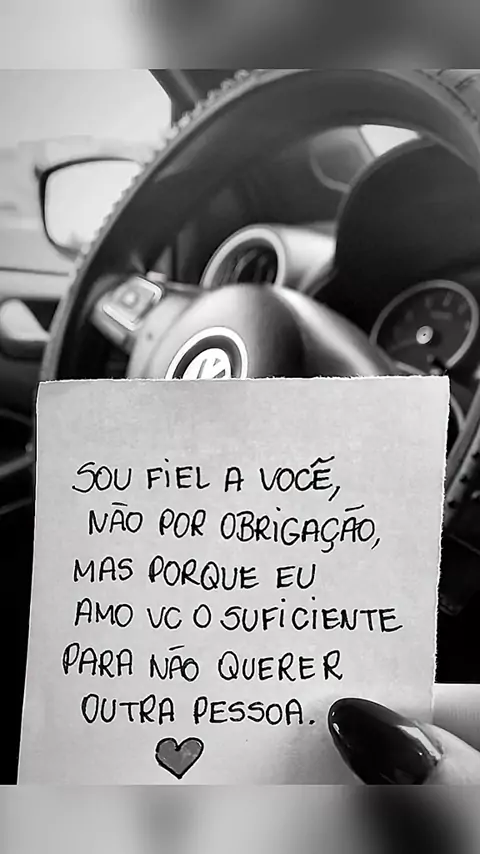 SOU FIEL A VOCÊ,
NÃO POR OBRIGAÇÃO,
MAS PORQUE EU
AMO VC O SUFICIENTE
PARA NÃO QUERER
OUTRA PESSOA.